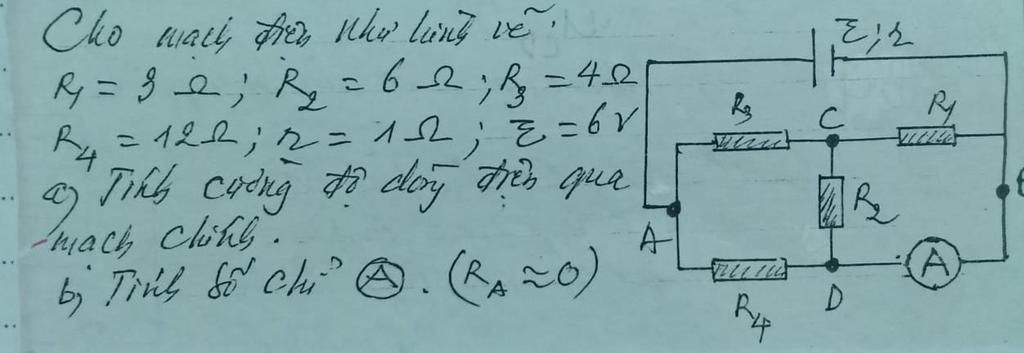 Cho mạch điện như hình vẽ:
R1 = 3 Ω; R2 = 6 Ω; R3 = 4 Ω
R4 = 12 Ω; r = 1 Ω; ℰ = 6 V
a) Tính cường độ dòng điện qua
mạch chính.
b) Tính số chỉ Ⓐ. (RA ≈ 0)
ℰ; r
R3 C R1
R2
A
A
R4 D